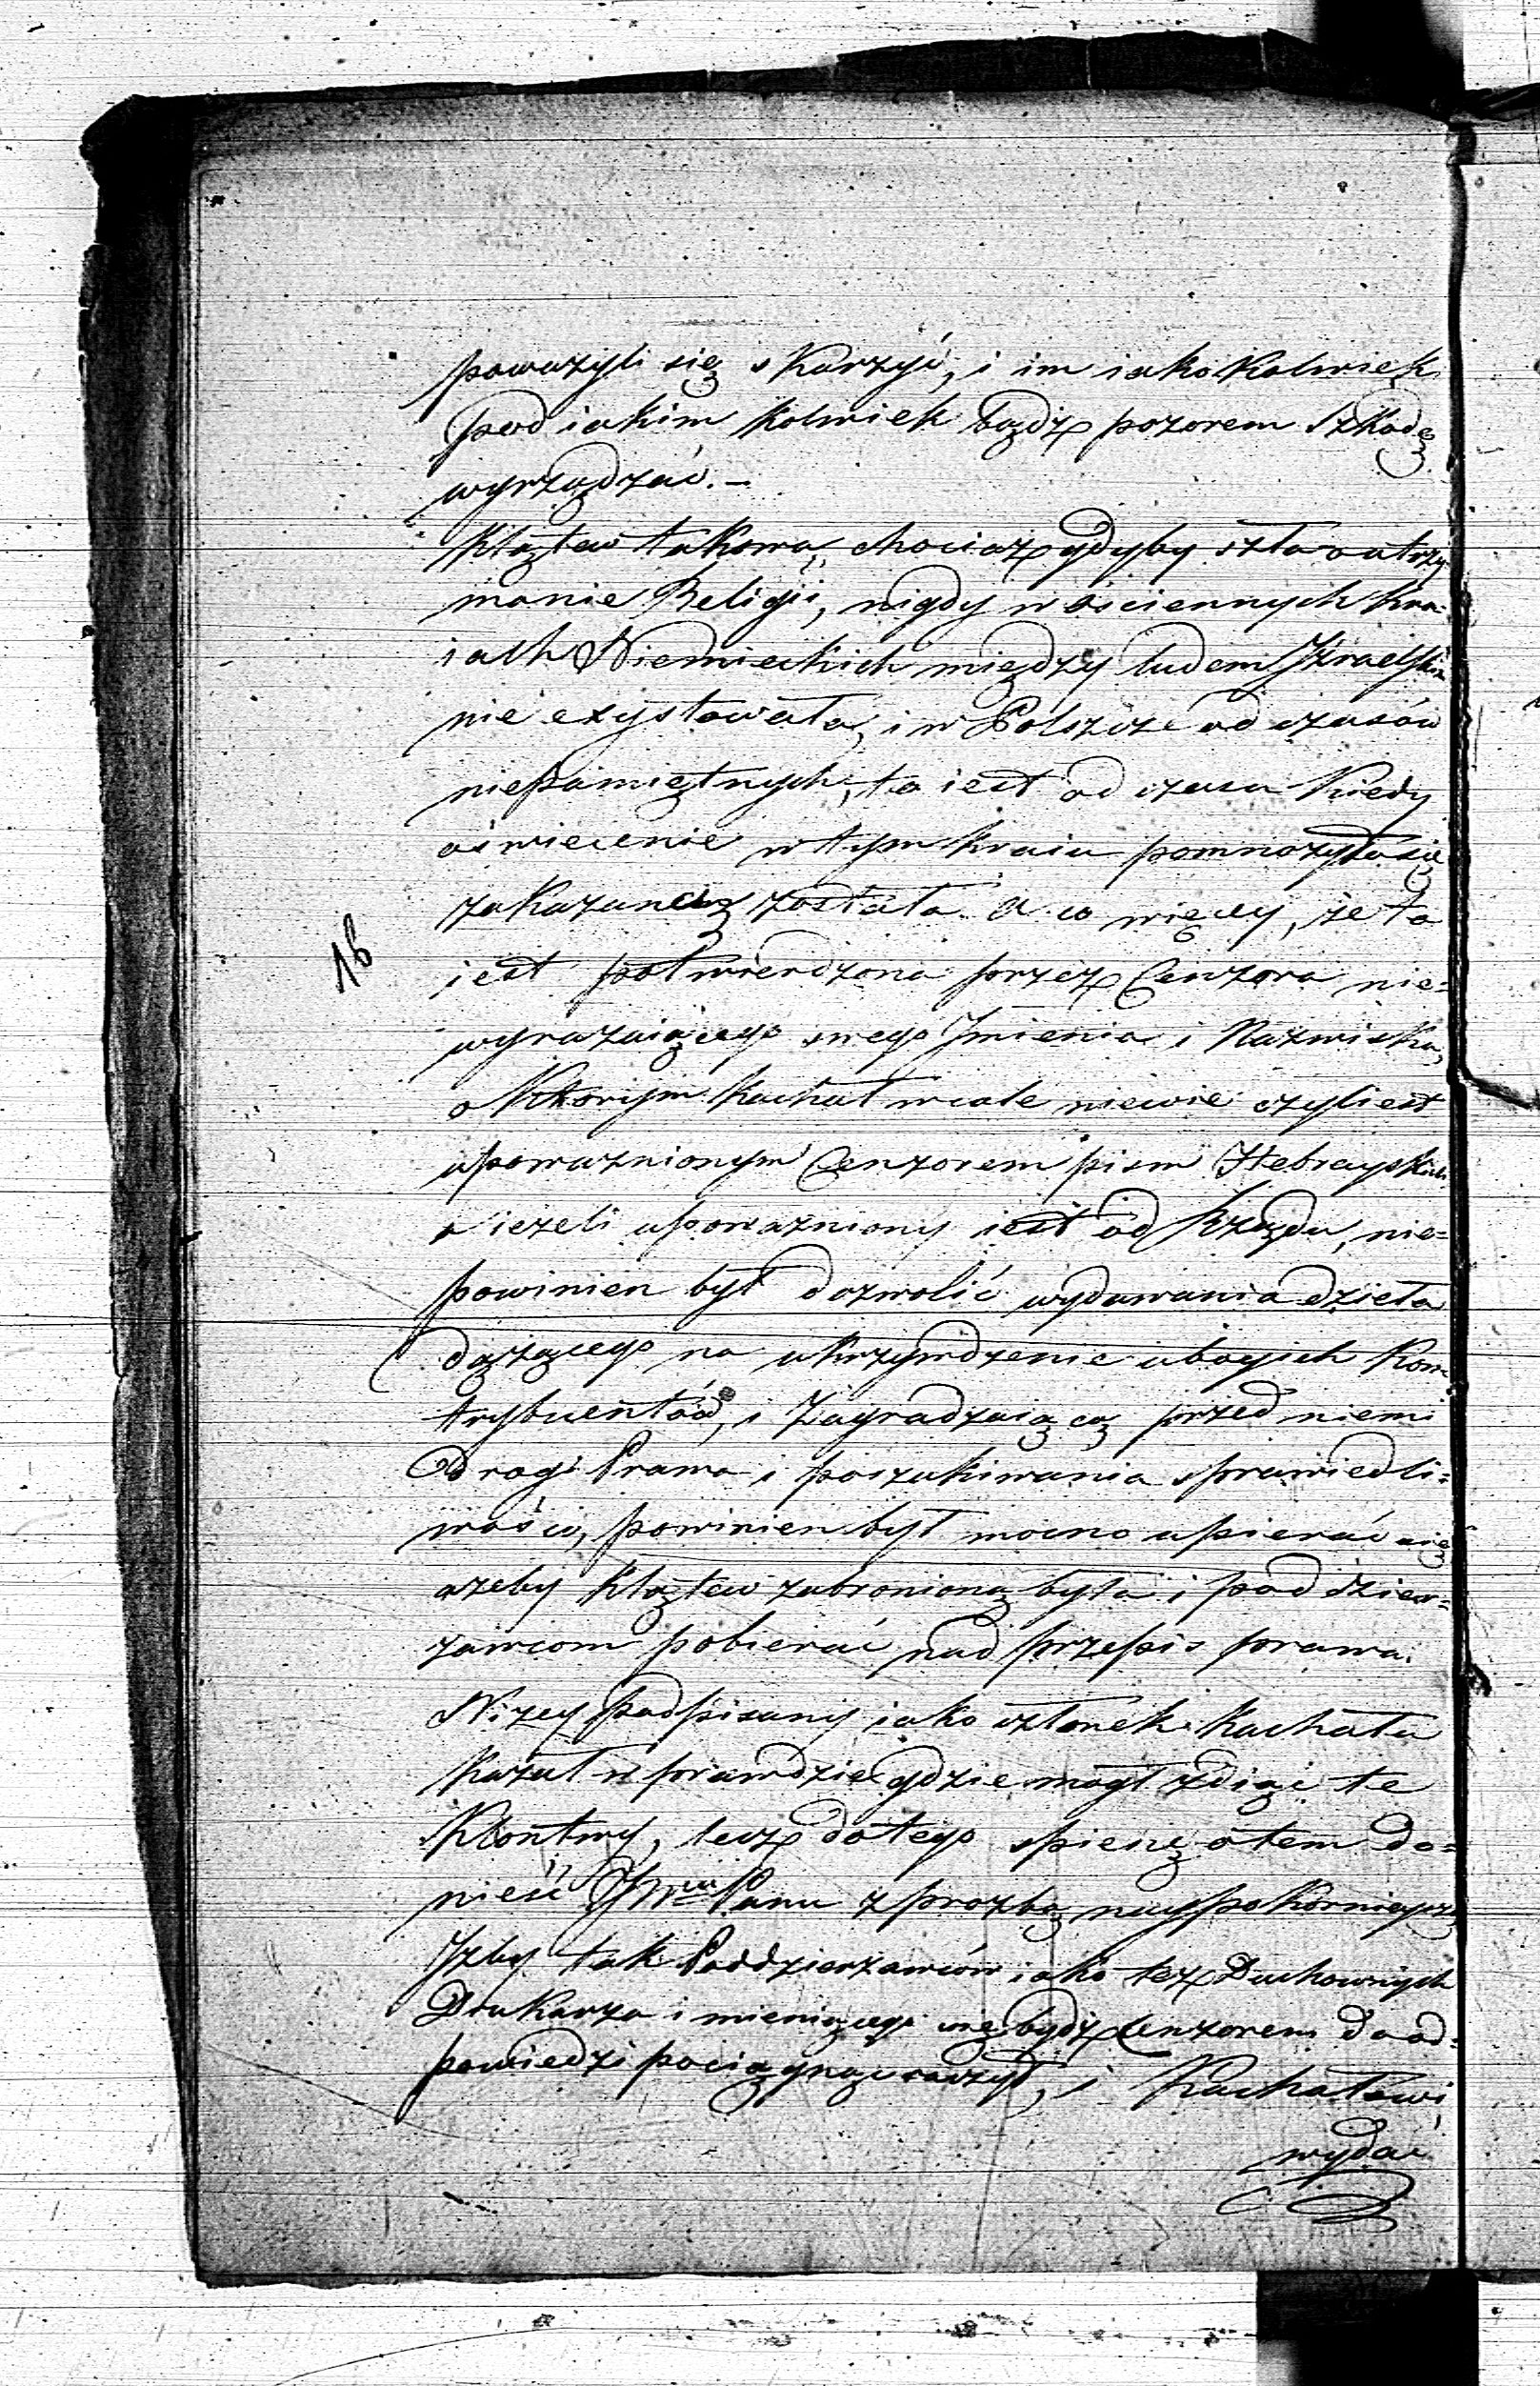 poważyli się skarzyć, i im iakokolwiek
pod iakim kolwiek bądź pozorem szkodę
wyrządzać. –
Klątew takowa, chociaż gdyby szła o utrzy-
manie Religii, nigdy w ościennych kra-
iach Niemieckich między ludem Izraelskim
nie exystowała, i w Polszcze od czasów
niepamiętnych, to iest od czasu kiedy
oświecenie w tym kraiu pomnożyło się
zakazaną została. A co więcey, że ta
jest potwierdzona przez Cenzora nie=
wyrażaiącego swego Imienia i Nazwiska,
o którym Kachał wcale niewie czyli est
upoważnionym Cenzorem pism Hebrayskich
a ieżeli upoważniony iest od Rządu, nie=
powinien był dozwolić wydawania dzieła
dążącego na ukrzywdzenie ubogich kon
trybuentów, i Zagradzaiącą przed niemi
Drogi Prawa i poszukiwania sprawiedli=
wości, powinien był mocno upierać się
ażeby Klątew zabronioną była i pod dzier=
żawcom pobierać nad przepis prawa.
Niżey podpisany iako członek Kachału
kazał wprawdzie gdzie mógł zdiąć te
Klontwy, lecz do tego spieszę o tem do=
nieść JWmu Panu z prozbą naypokornieyszą
Izby tak Poddzierżawców iako też Duchownych
Drukarza i mieniącego się bydź Cenzorem do od=
powiedzi pociągnąć raczył, i Kachałowi
wydać
16